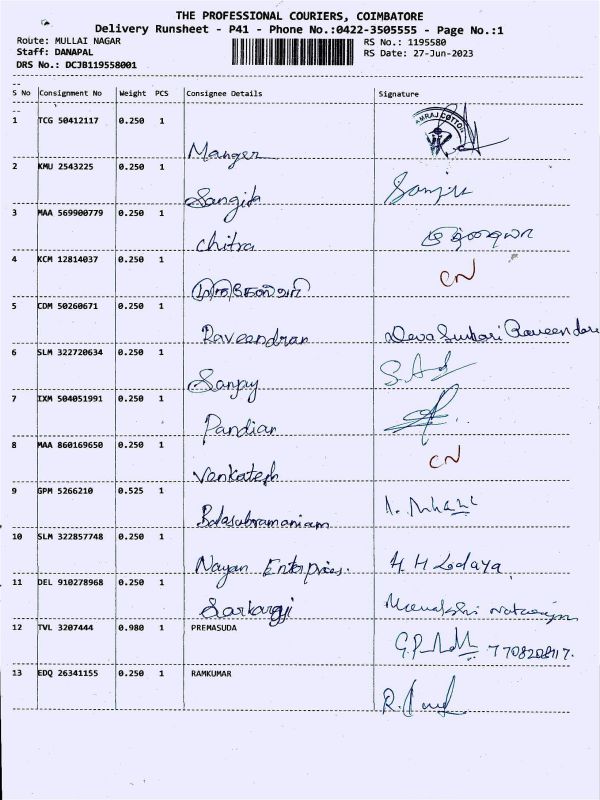 THE PROFESSIONAL COURIERS, COIMBATORE
Delivery Runsheet - P41 - Phone No.:0422-3505555 - Page No.:1
Route: MULLAI NAGAR RS No.: 1195580
Staff: DANAPAL RS Date: 27-Jun-2023
DRS No.: DCJB119558001
S No Consignment No Weight PCS Consignee Details Signature
1 TCG 50412117 0.250 1
Manger
2 KMU 2543225 0.250 1
Sangita
3 MAA 569900779 0.250 1
chitra
4 KCM 12814037 0.250 1 CN
5 CDM 50260671 0.250 1
Raveendran
6 SLM 322720634 0.250 1
Sanjay S.
7 IXM 504051991 0.250 1
Pandian
8 MAA 860169650 0.250 1 CN
Venkatesh
9 GPM 5266210 0.525 1
Balasubramaniam
10 SLM 322857748 0.250 1
Nayan Enterprices. H H Lodaya
11 DEL 910278968 0.250 1
12 TVL 3207444 0.980 1 PREMASUDA
7708208117.
13 EDQ 26341155 0.250 1 RAMKUMAR